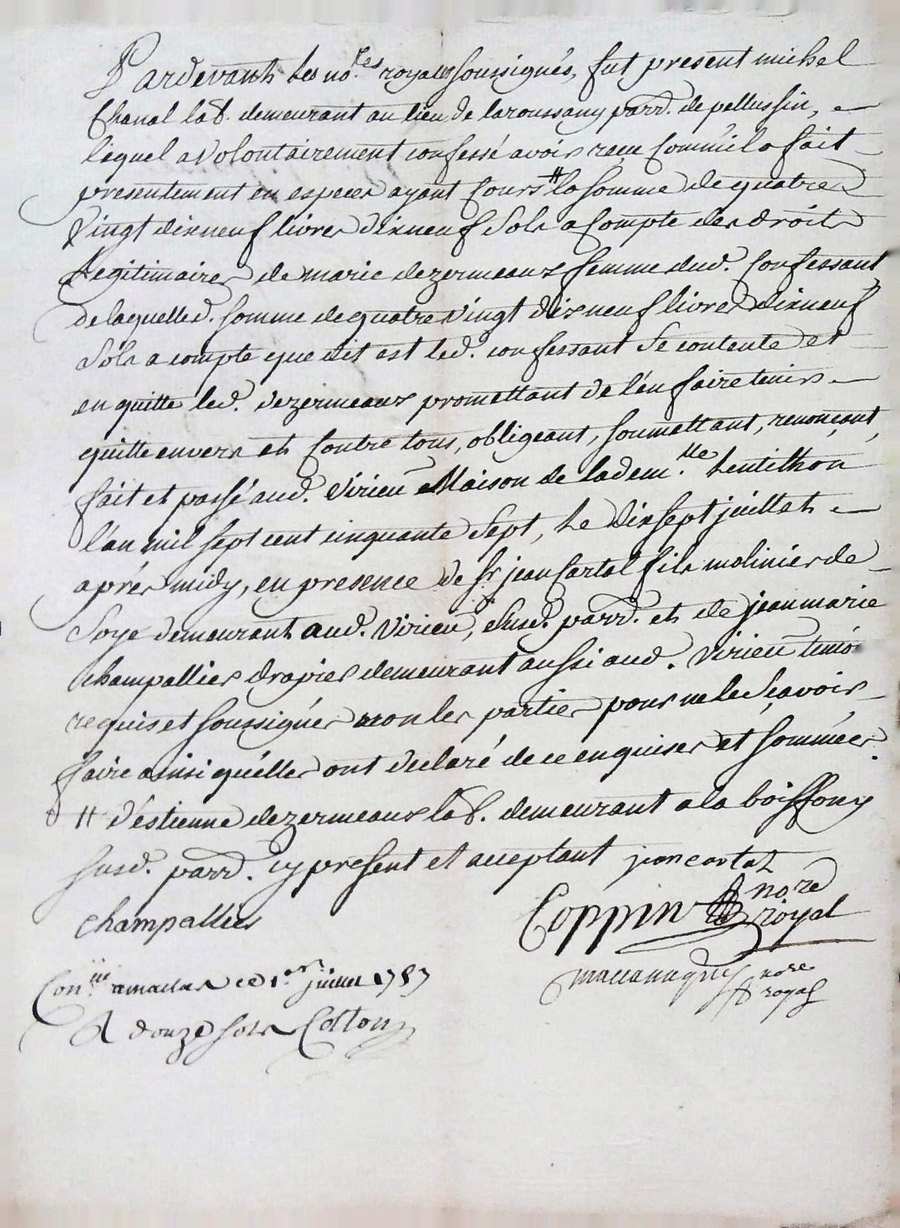 Pardevant les no.res royaux soussignés, fut present michel
Chanal lab. demeurant au lieu de laroussany parr. de pellussin,
lequel a volontairement confessé avoir reçu Comme il a fait
presentement en especes ayant Cours # la somme de quatre
vingt dixneuf livres dixneuf sols a compte des droits
Legitimaires de marie dezermeaux femme dud. Confessant
de laquelled. somme de quatre vingt dix neuf livres dixneuf
sols a compte que dit est led. confessant se contente et
en quitte led. dezermeaux promettant de l'en faire tenir
quitte envers et Contre tous, obligeant, soumettant, renonçant,
fait et passé aud. Virieu Maison de la dem.lle Lentilhon
l'an mil sept cent cinquante sept, Le dixsept juillet
aprés midy, en presence de Sr jean Cartal fils molinier de
soye demeurant aud. Virieu, susd. parr. et de jean marie
champallier drapier demeurant aussi aud. Virieu temo
requis et soussignés non les parties pour ne le sçavoir
faire ainsi qu'elles ont declaré de ce enquises et sommées.
# d'estienne dezermeaux lab. demeurant a la boissony
susd. parr. cy present et acceptant jean cartal
champallier Coppin nore royal
Con.lle a ce 1er juillet 1757 nore royal
R douze sols Cotton